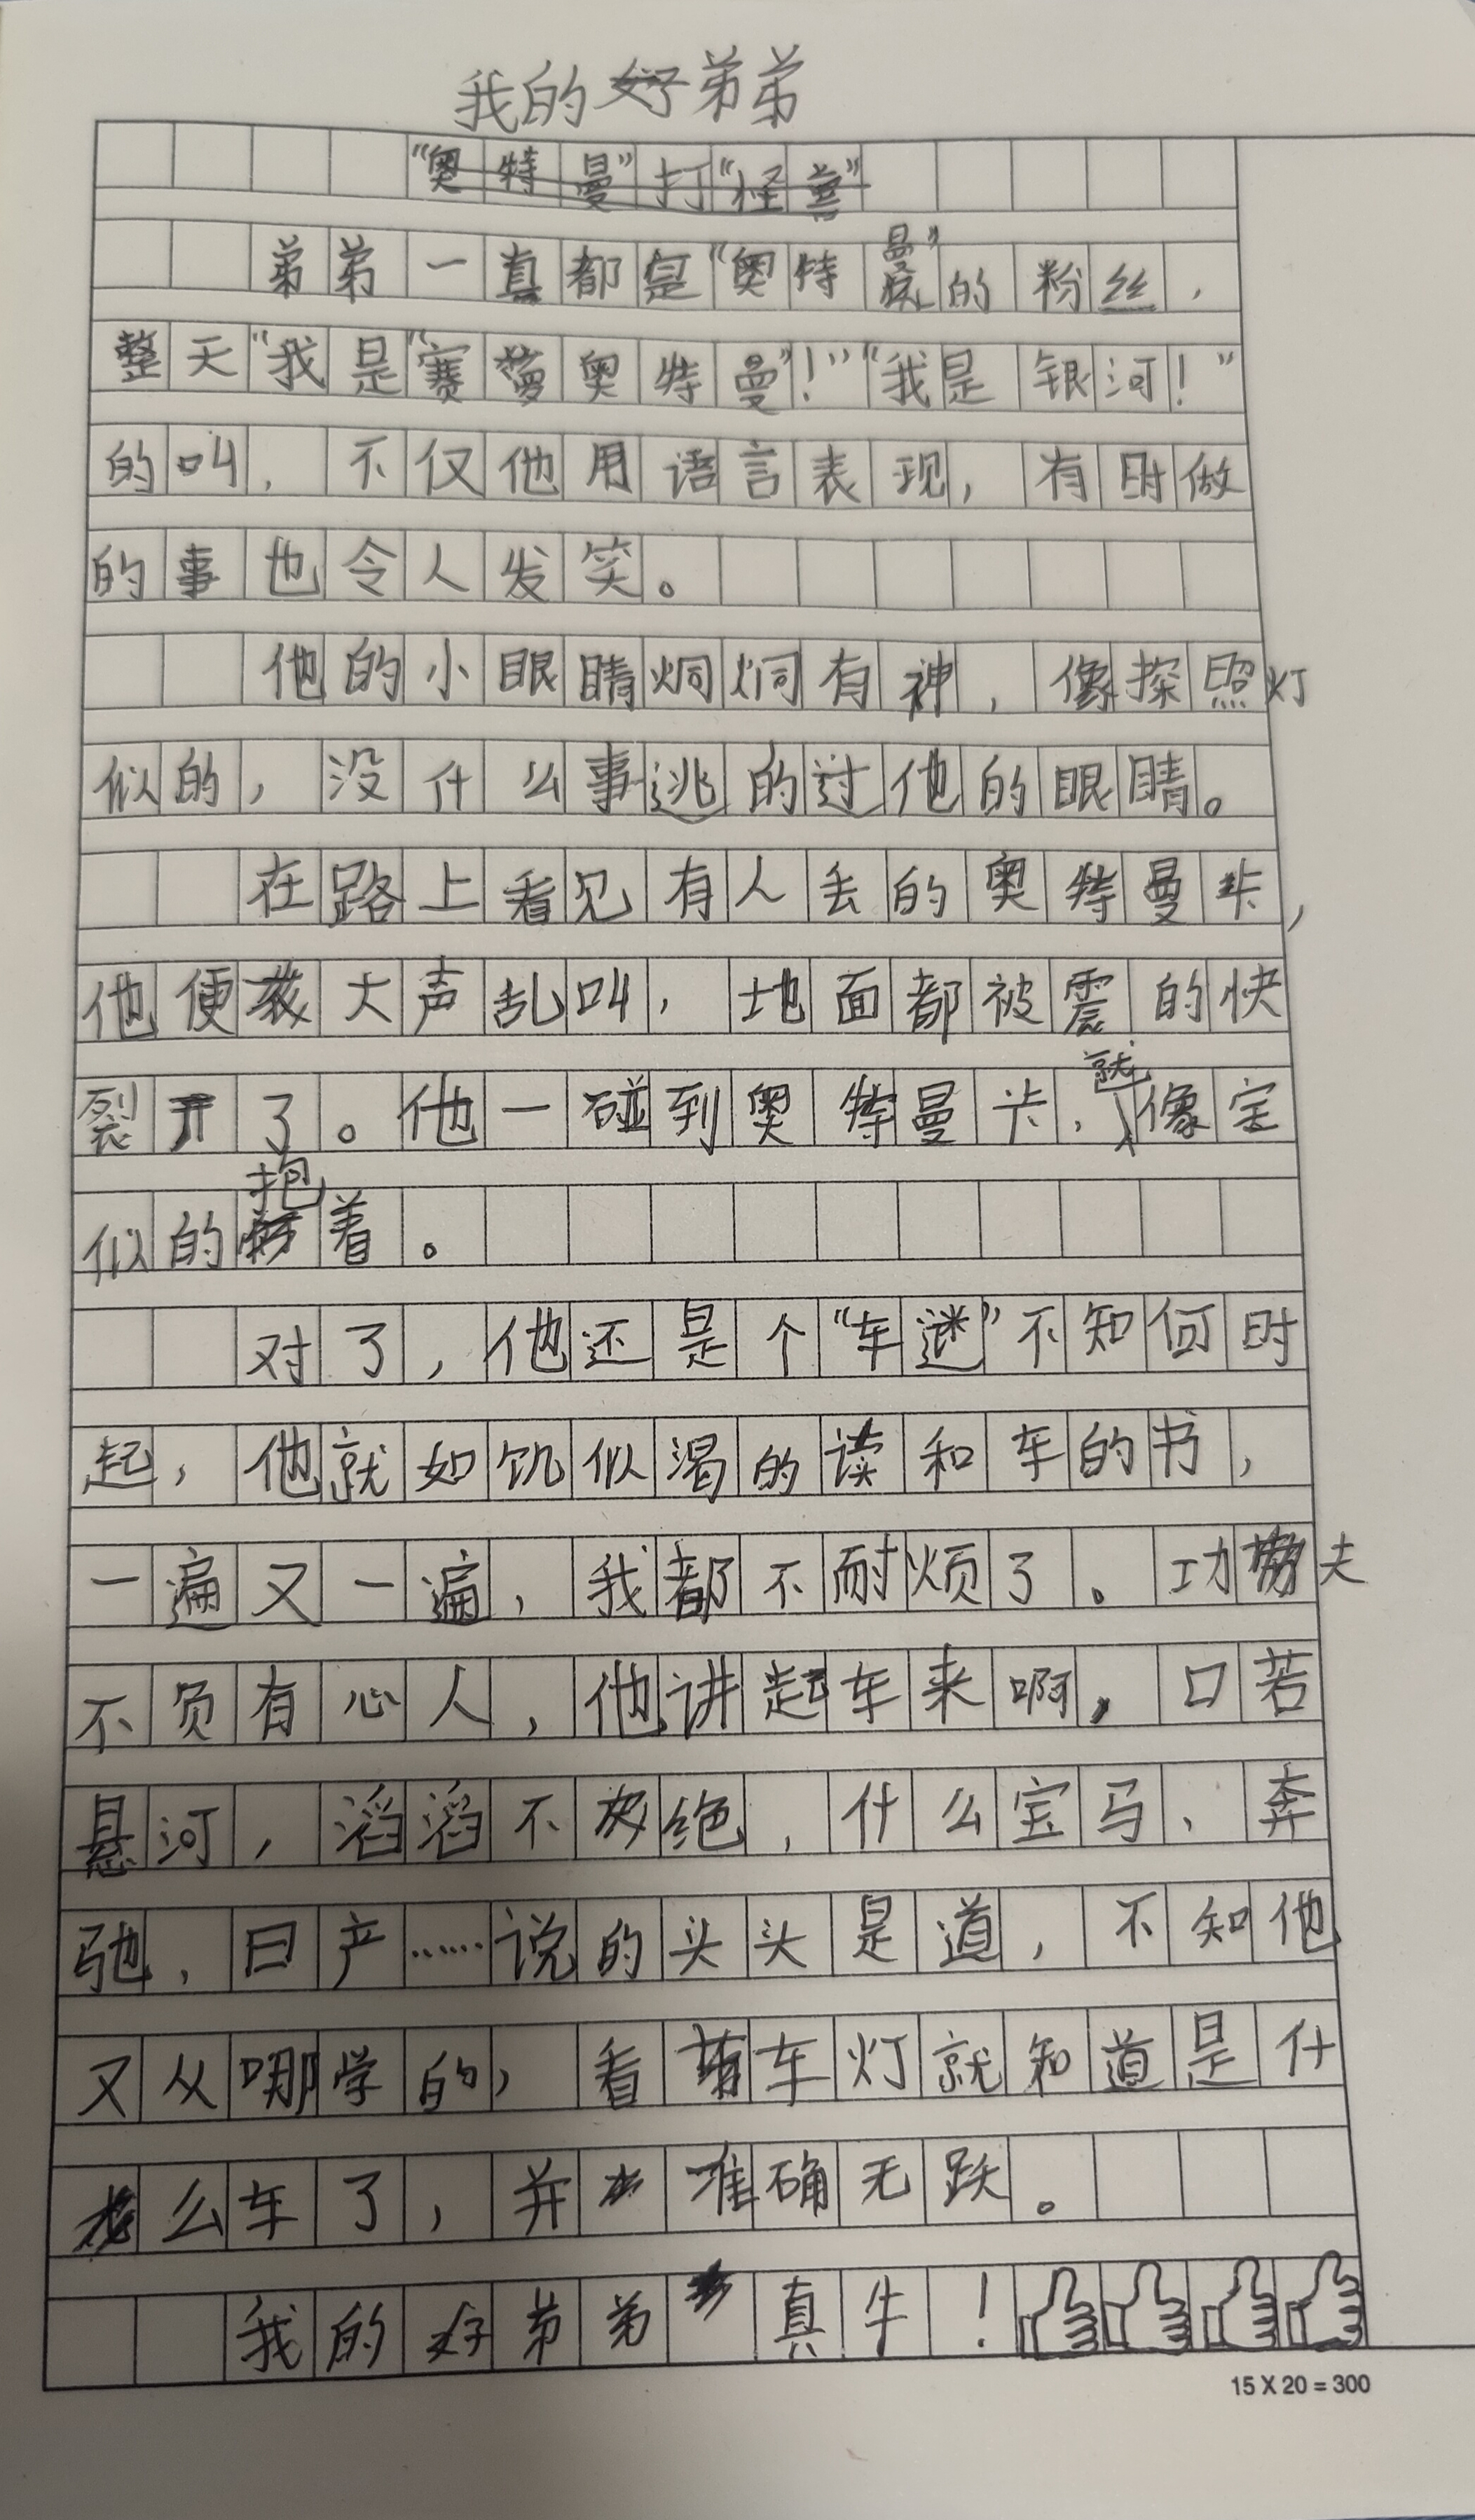 我的好弟弟
"奥特曼"打"怪兽"
弟弟一真都是"奥特曼"的粉丝，
整天"我是"赛罗奥特曼"！""我是银河！"
的叫，不仅他用语言表现，有时做
的事也令人发笑。
他的小眼睛炯炯有神，像探照灯
似的，没什么事逃的过他的眼睛。
在路上看见有人丢的奥特曼卡，
他便大声乱叫，地面都被震的快
裂开了。他一碰到奥特曼卡，就像宝
似的抱着。
对了，他还是个"车谜"不知何时
起，他就如饥似渴的读和车的书，
一遍又一遍，我都不耐烦了。功夫
不负有心人，他讲起车来啊，口若
悬河，滔滔不绝，什么宝马、奔
驰、日产……说的头头是道，不知他
又从哪学的，看车灯就知道是什
么车了，并准确无跌。
我的好弟弟真牛！
15 X 20 = 300